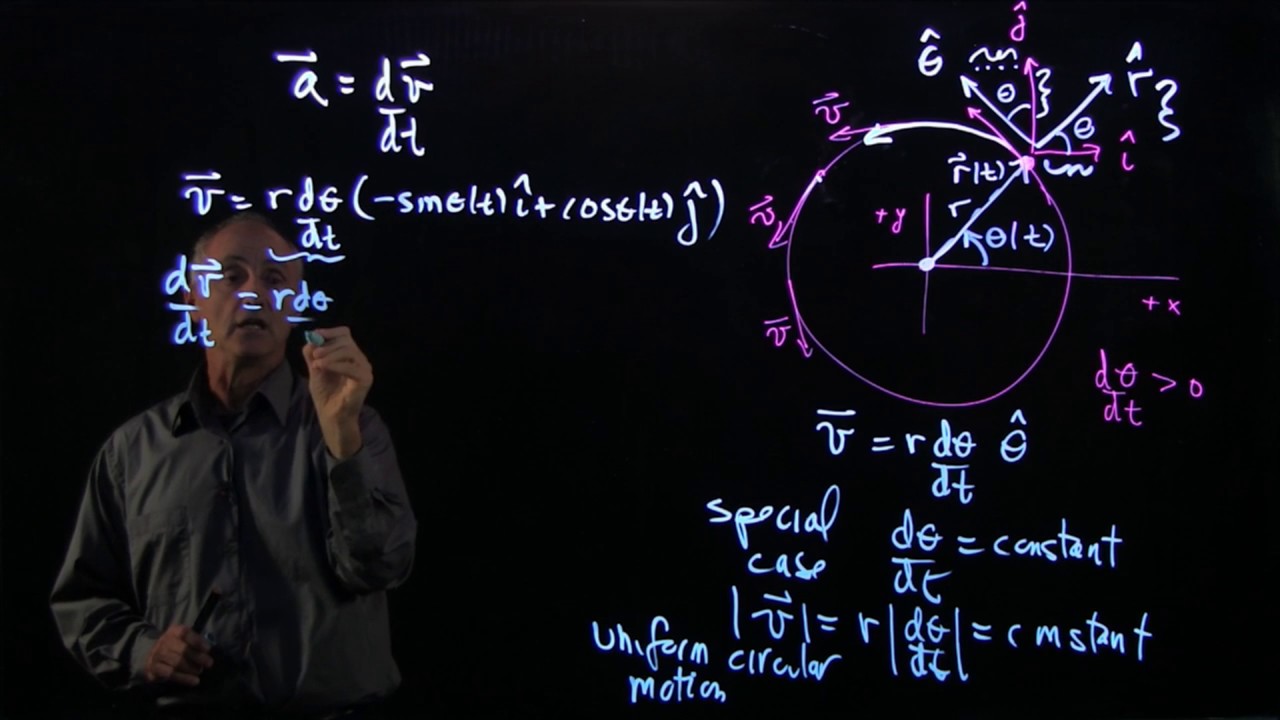 a⃗ = dv⃗/dt
v⃗ = r dθ/dt (-sinθ(t) î + cosθ(t) ĵ)
dv⃗/dt = r dθ
ĵ
θ̂
r̂
θ
θ
î
v⃗
r⃗(t)
r
v⃗
+y
θ(t)
+x
v⃗
dθ/dt > 0
v⃗ = r dθ/dt θ̂
special
case
dθ/dt = constant
|v⃗| = r |dθ/dt| = constant
uniform circular
motion